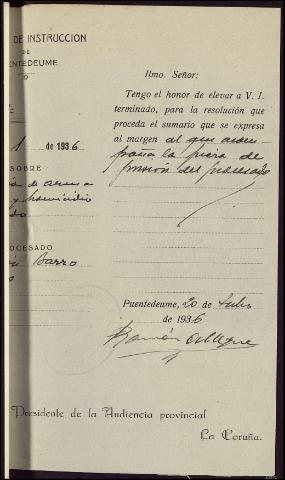 DE INSTRUCCION
DE
ENTEDEUME
Ilmo. Señor:
Tengo el honor de elevar a V. I.
terminado, para la resolución que
proceda el sumario que se expresa
al margen al que acom-
paña la pieza de
prisión del procesado
1 de 1936
SOBRE
de arma
y homicidio
OCESADO
Barro
Puentedeume, 20 de Julio
de 1936
Ramón
Presidente de la Audiencia provincial
La Coruña.